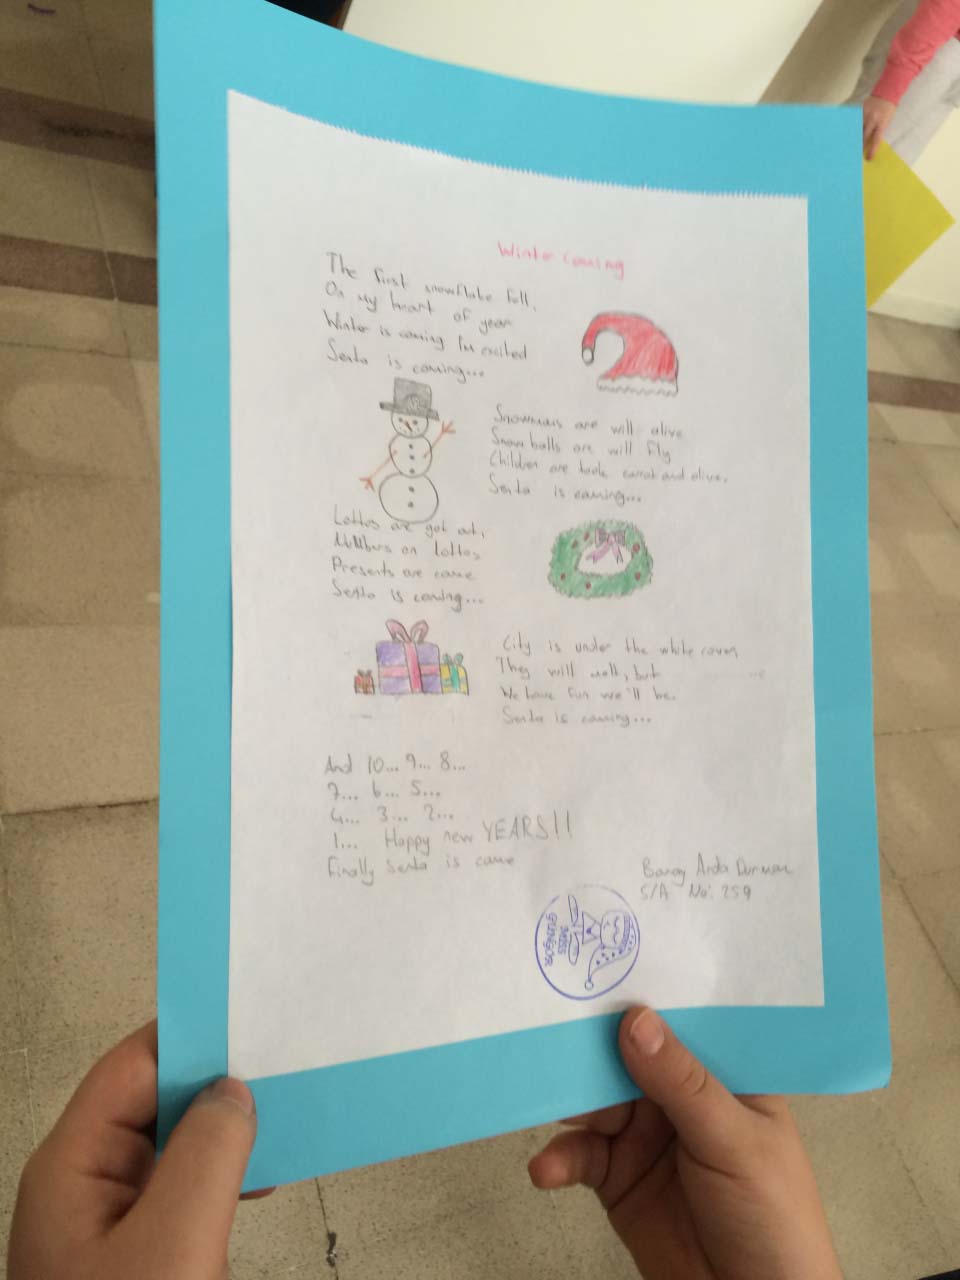 Winter Coming
The first snowflake fell,
On my heart of year
Winter is coming I'm excited
Santa is coming...
Snowmans are will alive
Snow balls are will fly
Children are took carrot and olive.
Santa is coming...
Lottos are got out,
Numbers on lottos
Presents are came
Santa is coming...
City is under the white cover
They will melt, but
We have fun we'll be.
Santa is coming...
And 10... 9... 8...
7... 6... 5...
4... 3... 2...
1... Happy new YEARS!!
Finally Santa is came
Arda Durman
5/A No: 259
MISS